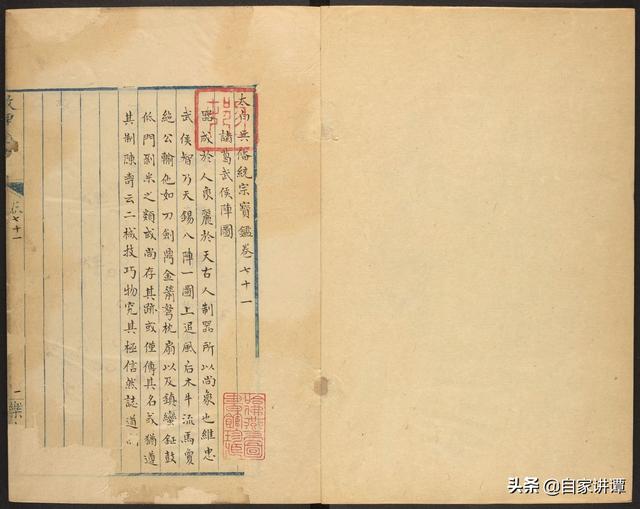 太乙兵備統宗寶鑑卷七十一
諸葛武侯陣圖
器成於人象麗於天古人制器所以尚象也維忠
武侯智乃天錫八陣一圖上追風后木牛流馬實
絶公輸他如刀劍
金箭弩枕扇以及鎮蠻鉦鼓
低門剁米之類或尚存其跡或僅傳其名或猶遵
其制陳壽云二械技巧物究其極信然誌道
卷七十一
一
哈佛燕京圖
書館珍藏
头条 @自家讲谭